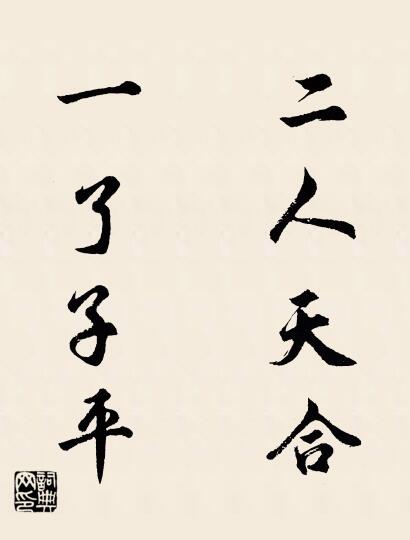 二人天合
一了子平
詞典网印